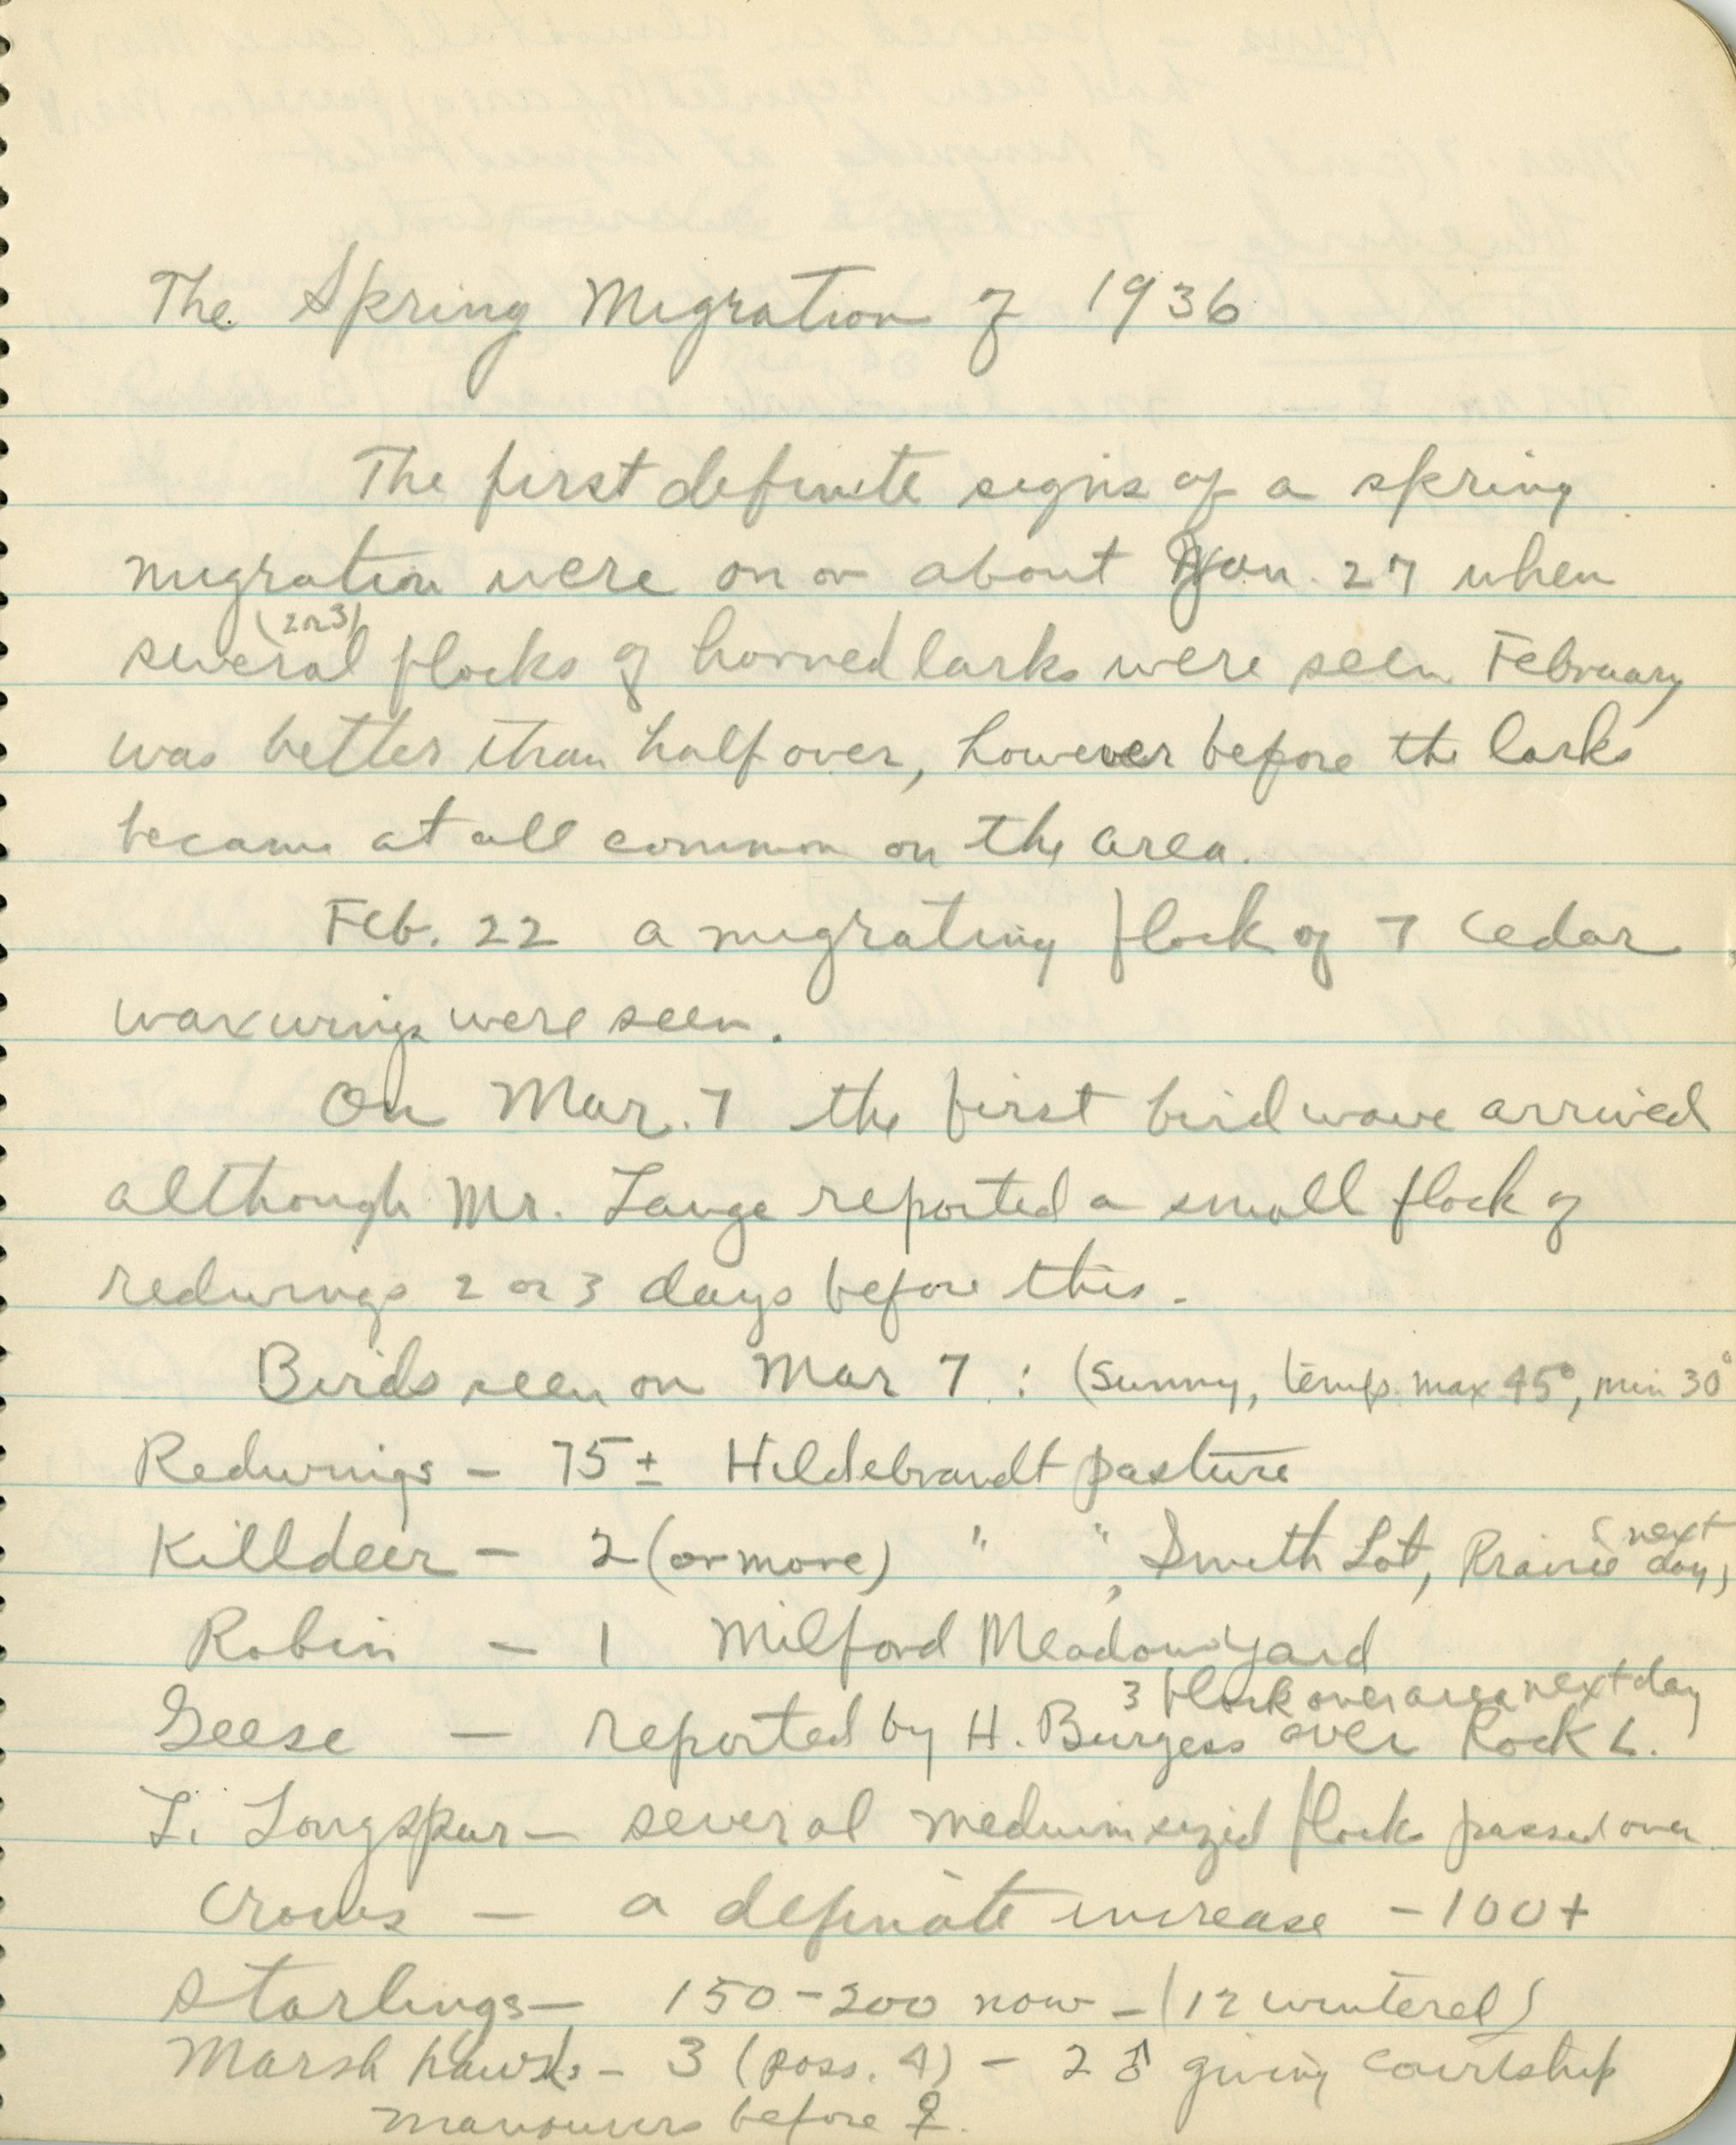 The Spring Migration of 1936
The first definite signs of a spring
migration were on or about Jan. 27 when
(2 or 3)
several flocks of horned larks were seen February
was better than half over, however before the larks
became at all common on the area.
Feb. 22 a migrating flock of 7 cedar
waxwings were seen.
On Mar. 7 the first bird wave arrived
although Mr. Lange reported a small flock of
redwings 2 or 3 days before this.
Birds seen on Mar 7 : (Sunny, temp. max 45°, min 30°
Redwings – 75± Hildebrandt pasture
Killdeer – 2 (or more) " ", Smith Lot, Prairie (next day)
Robin – 1 Milford Meadows yard
3 flock over area next day
Geese – reported by H. Burgess over Rock L.
L. Longspur – several medium sized flocks passed over
Crows – a definate increase – 100+
Starlings – 150–200 now – (12 wintered)
Marsh hawks – 3 (poss. 4) – 2 ♂ giving courtship
manouvers before ♀.